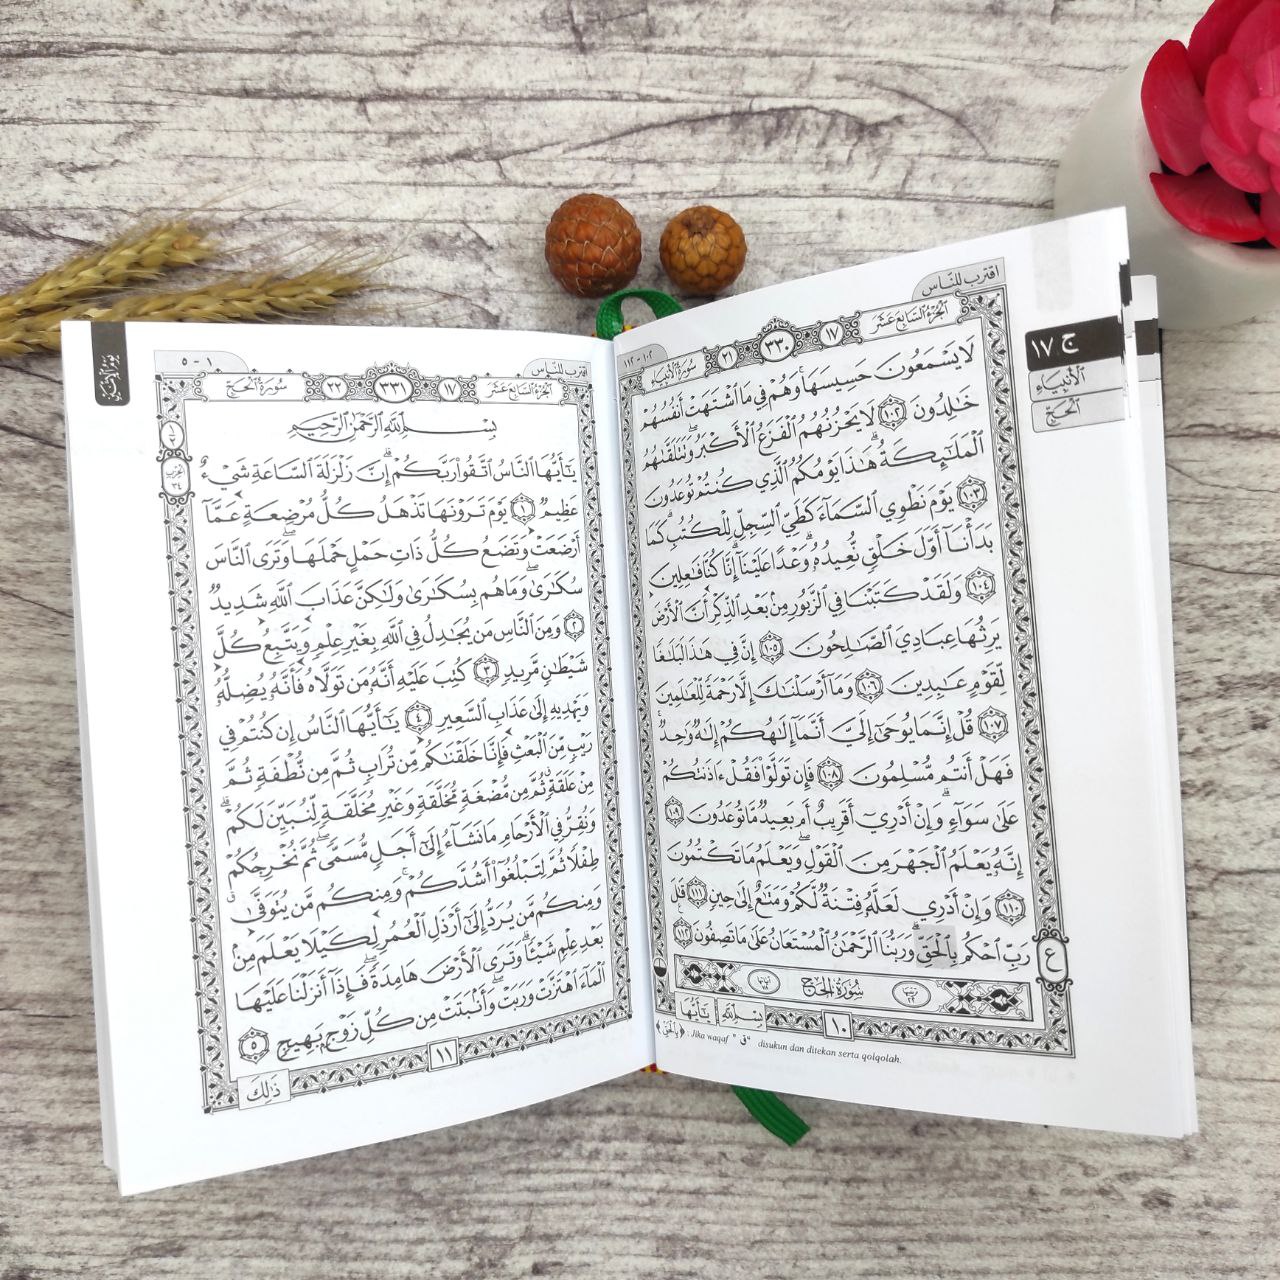 اقترب للنّاس
١٠٢ - ١١٢
سُورَةُ الأَنبِيَاءِ
٢١
٣٣٠
١٧
الجُزْءُ السَّابِعَ عَشَرَ
لَا يَسْمَعُونَ حَسِيسَهَا ۖ وَهُمْ فِي مَا اشْتَهَتْ أَنفُسُهُمْ
خَالِدُونَ ١٠٢ لَا يَحْزُنُهُمُ الْفَزَعُ الْأَكْبَرُ وَتَتَلَقَّاهُمُ
الْمَلَائِكَةُ هَٰذَا يَوْمُكُمُ الَّذِي كُنتُمْ تُوعَدُونَ
١٠٣ يَوْمَ نَطْوِي السَّمَاءَ كَطَيِّ السِّجِلِّ لِلْكُتُبِ ۚ كَمَا
بَدَأْنَا أَوَّلَ خَلْقٍ نُّعِيدُهُ ۚ وَعْدًا عَلَيْنَا ۚ إِنَّا كُنَّا فَاعِلِينَ
١٠٤ وَلَقَدْ كَتَبْنَا فِي الزَّبُورِ مِنْ بَعْدِ الذِّكْرِ أَنَّ الْأَرْضَ
يَرِثُهَا عِبَادِيَ الصَّالِحُونَ ١٠٥ إِنَّ فِي هَٰذَا لَبَلَاغًا
لِّقَوْمٍ عَابِدِينَ ١٠٦ وَمَا أَرْسَلْنَاكَ إِلَّا رَحْمَةً لِّلْعَالَمِينَ
١٠٧ قُلْ إِنَّمَا يُوحَىٰ إِلَيَّ أَنَّمَا إِلَٰهُكُمْ إِلَٰهٌ وَاحِدٌ ۖ
فَهَلْ أَنتُم مُّسْلِمُونَ ١٠٨ فَإِن تَوَلَّوْا فَقُلْ ءَاذَنتُكُمْ
عَلَىٰ سَوَاءٍ ۖ وَإِنْ أَدْرِي أَقَرِيبٌ أَم بَعِيدٌ مَّا تُوعَدُونَ ١٠٩
إِنَّهُ يَعْلَمُ الْجَهْرَ مِنَ الْقَوْلِ وَيَعْلَمُ مَا تَكْتُمُونَ
١١٠ وَإِنْ أَدْرِي لَعَلَّهُ فِتْنَةٌ لَّكُمْ وَمَتَاعٌ إِلَىٰ حِينٍ ١١١ قَالَ
رَبِّ احْكُم بِالْحَقِّ ۗ وَرَبُّنَا الرَّحْمَٰنُ الْمُسْتَعَانُ عَلَىٰ مَا تَصِفُونَ ١١٢
ع
سُورَةُ الحَجِّ
بِسْمِ اللهِ
يَا أَيُّهَا
١٠
(بِالْحَقِّ) : Jika waqaf "ق" disukun dan ditekan serta qolqolah.
ج ١٧
الأَنبِيَاءِ
الحَجّ
اقترب للنّاس
١ - ٥
سُورَةُ الحَجِّ
٢٢
٣٣١
١٧
الجُزْءُ السَّابِعَ عَشَرَ
بِسْمِ اللهِ الرَّحْمَٰنِ الرَّحِيمِ
يَا أَيُّهَا النَّاسُ اتَّقُوا رَبَّكُمْ ۚ إِنَّ زَلْزَلَةَ السَّاعَةِ شَيْءٌ
عَظِيمٌ ١ يَوْمَ تَرَوْنَهَا تَذْهَلُ كُلُّ مُرْضِعَةٍ عَمَّا
أَرْضَعَتْ وَتَضَعُ كُلُّ ذَاتِ حَمْلٍ حَمْلَهَا وَتَرَى النَّاسَ
سُكَارَىٰ وَمَا هُم بِسُكَارَىٰ وَلَٰكِنَّ عَذَابَ اللَّهِ شَدِيدٌ
٢ وَمِنَ النَّاسِ مَن يُجَادِلُ فِي اللَّهِ بِغَيْرِ عِلْمٍ وَيَتَّبِعُ كُلَّ
شَيْطَانٍ مَّرِيدٍ ٣ كُتِبَ عَلَيْهِ أَنَّهُ مَن تَوَلَّاهُ فَأَنَّهُ يُضِلُّهُ
وَيَهْدِيهِ إِلَىٰ عَذَابِ السَّعِيرِ ٤ يَا أَيُّهَا النَّاسُ إِن كُنتُمْ فِي
رَيْبٍ مِّنَ الْبَعْثِ فَإِنَّا خَلَقْنَاكُم مِّن تُرَابٍ ثُمَّ مِن نُّطْفَةٍ ثُمَّ
مِنْ عَلَقَةٍ ثُمَّ مِن مُّضْغَةٍ مُّخَلَّقَةٍ وَغَيْرِ مُخَلَّقَةٍ لِّنُبَيِّنَ لَكُمْ ۚ
وَنُقِرُّ فِي الْأَرْحَامِ مَا نَشَاءُ إِلَىٰ أَجَلٍ مُّسَمًّى ثُمَّ نُخْرِجُكُمْ
طِفْلًا ثُمَّ لِتَبْلُغُوا أَشُدَّكُمْ ۖ وَمِنكُم مَّن يُتَوَفَّىٰ
وَمِنكُم مَّن يُرَدُّ إِلَىٰ أَرْذَلِ الْعُمُرِ لِكَيْلَا يَعْلَمَ مِنْ
بَعْدِ عِلْمٍ شَيْئًا ۚ وَتَرَى الْأَرْضَ هَامِدَةً فَإِذَا أَنزَلْنَا عَلَيْهَا
الْمَاءَ اهْتَزَّتْ وَرَبَتْ وَأَنبَتَتْ مِن كُلِّ زَوْجٍ بَهِيجٍ ٥
١١
ذَٰلِكَ